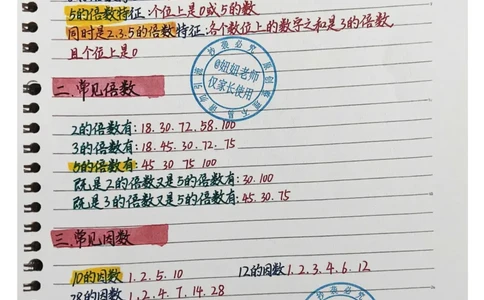 5的倍数特征:个位上是0或5的数
同时是2.3.5的倍数特征:各个数位上的数字之和是3的倍数,
且个位上是0
@妞妞老师
仅家长使用
二.常见倍数
2的倍数有:18.30.72.58.100
3的倍数有:18.45.30.72.75
5的倍数有:45 30 75 100
既是2的倍数又是5的倍数有:30.100
既是3的倍数又是5的倍数有:45.30.75
三.常见因数
10的因数 1.2.5.10 12的因数 1.2.3.4.6.12
28的因数 1.2.4.7.14.28